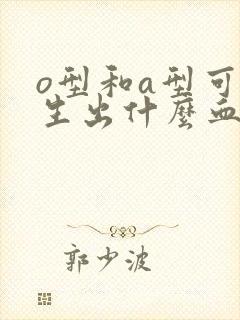 o型和a型可
生出什麼血
郭少波